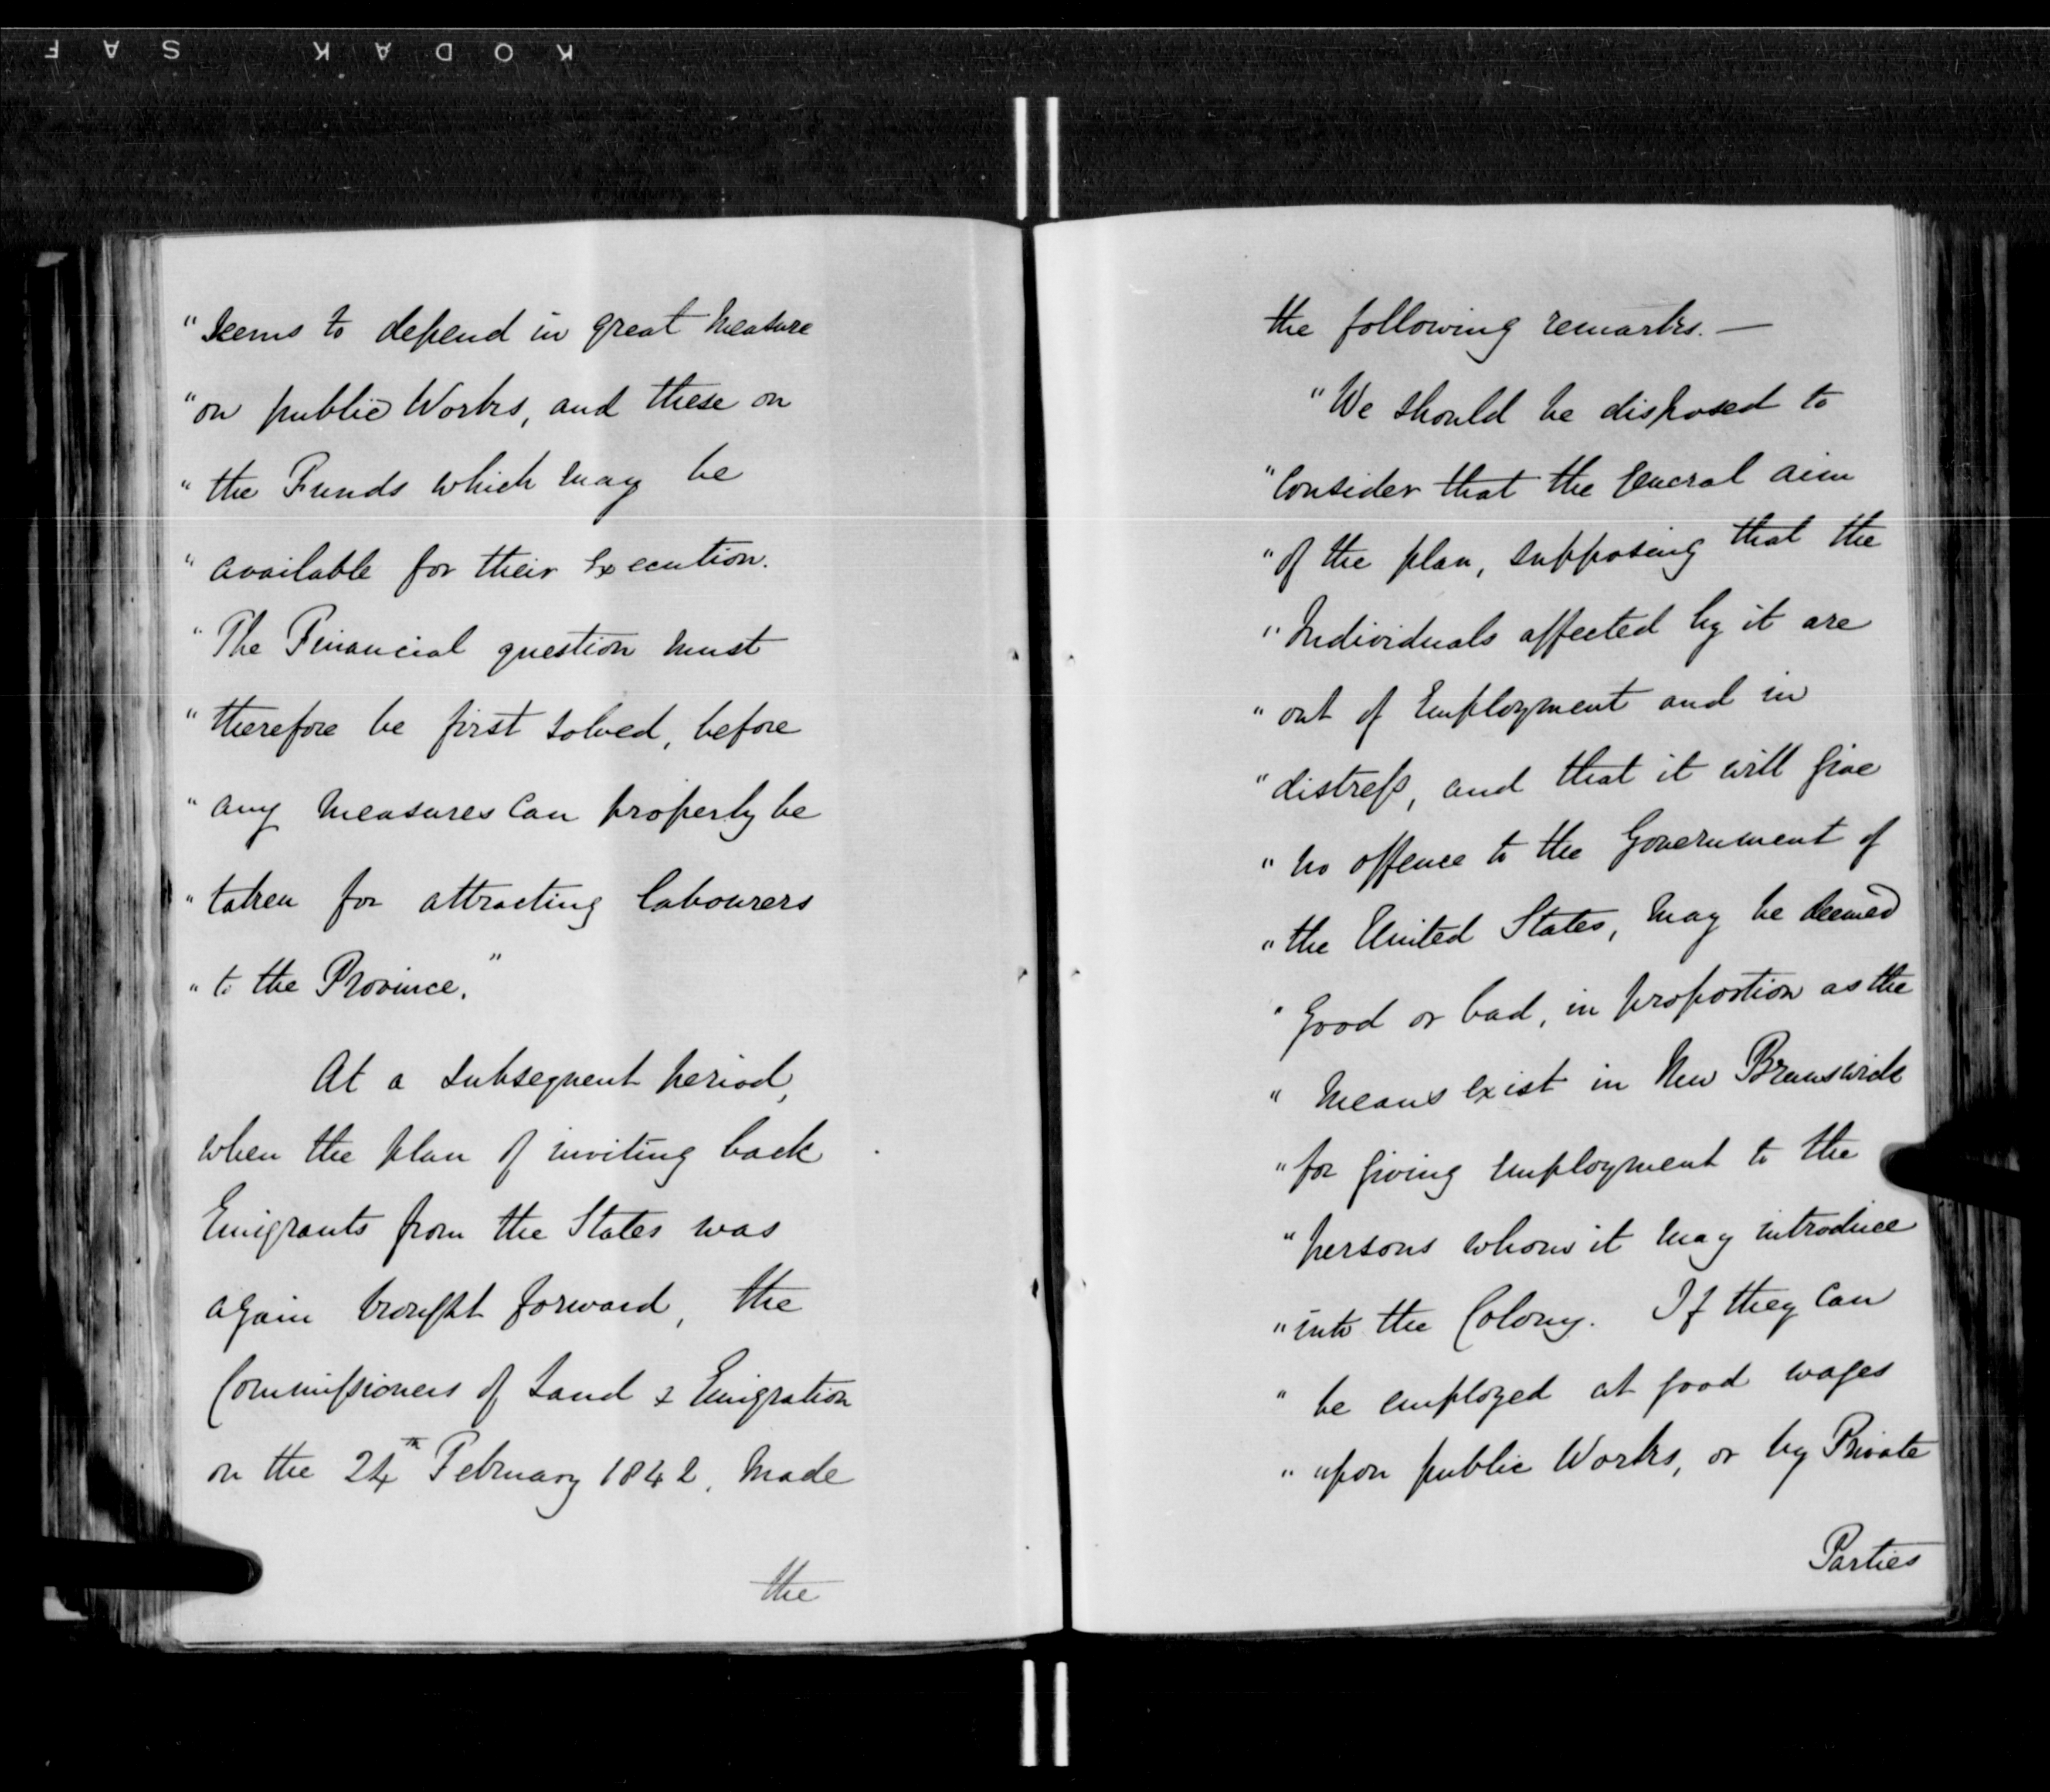 KODAK SAF
"Seems to depend in great Measure
"on public Works, and these on
"the Funds which may be
"available for their Execution.
"The Financial question must
"therefore be first solved, before
"any Measures Can properly be
"taken for attracting labourers
"to the Province."
At a subsequent period,
when the plan of inviting back
Emigrants from the States was
again brought forward, the
Commissioners of Land & Emigration
on the 24th February 1842, Made
the
the following remarks. —
"We should be disposed to
"Consider that the General aim
"of the plan, supposing that the
"Individuals affected by it are
"out of Employment and in
"distress, and that it will give
"no offence to the Government of
"the United States, may be deemed
"Good or bad, in proportion as the
"Means exist in New Brunswick
"for giving employment to the
"persons whom it may introduce
"into the Colony. If they Can
"be employed at good wages
"upon public Works, or by Private
Parties